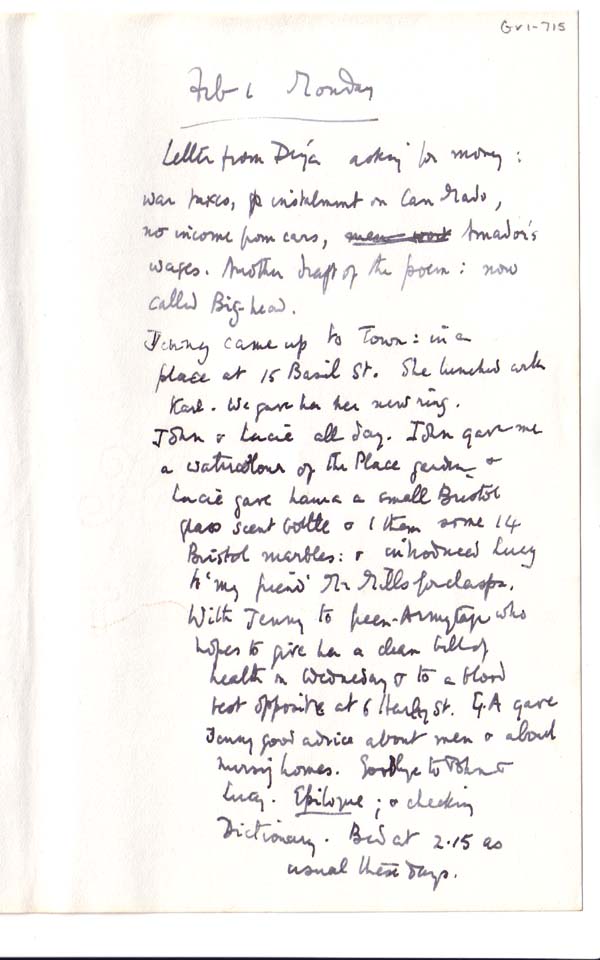 Gv1-715
Feb 1 Monday
Letter from Deýa asking for money:
war taxes, instalment on Can Mado,
no income from cars, men work Amador's
wages. Another draft of the poem: now
called Big-head.
Jenny came up to Town: in a
place at 15 Basil St. She lunched with
Karl. We gave her her new ring.
John & Lucie all day. John gave me
a watercolour of the Place garden &
Lucie gave Laura a small Bristol
glass scent bottle & I them some 14
Bristol marbles: & introduced Lucy
to 'my friend' Mr Mills for clasps.
With Jenny to Green-Armytage who
hopes to give her a clean bill of
health on Wednesday & to a blood
test opposite at 6 Harley St. G.A gave
Jenny good advice about men & about
nursing homes. Goodbye to John &
Lucy. Epilogue; & checking
Dictionary. Bed at 2.15 as
usual these days.